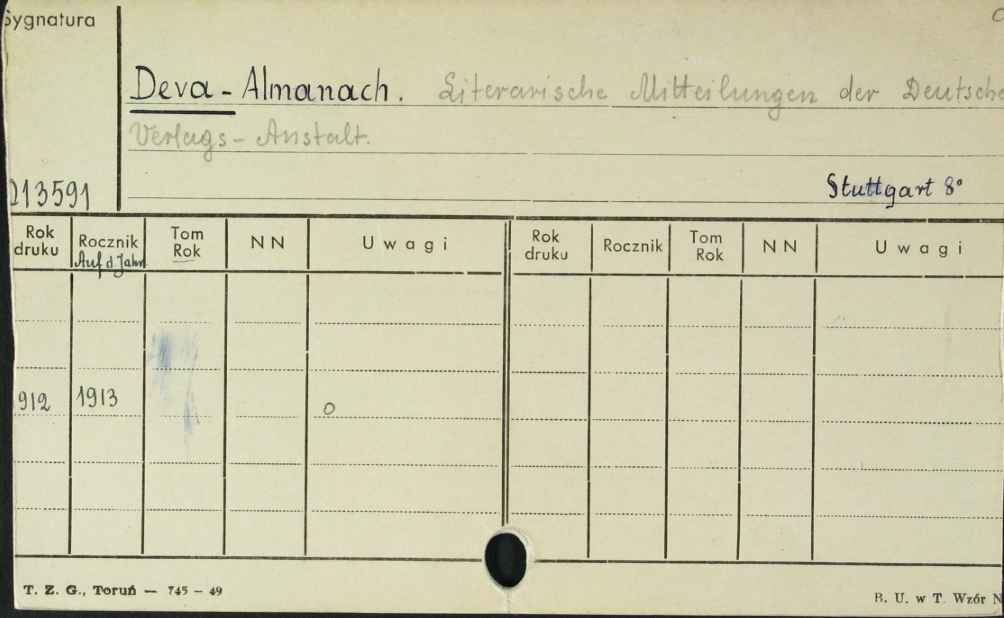 Sygnatura
Deva-Almanach. Literarische Mitteilungen der Deutsche
Verlags-Anstalt.
213591
Stuttgart 8°
Rok druku Rocznik Tom Rok NN Uwagi Rok druku Rocznik Tom Rok NN Uwagi
Auf d Jahr
912 1913 o
T. Z. G., Toruń — 745 - 49
B. U. w T. Wzór N